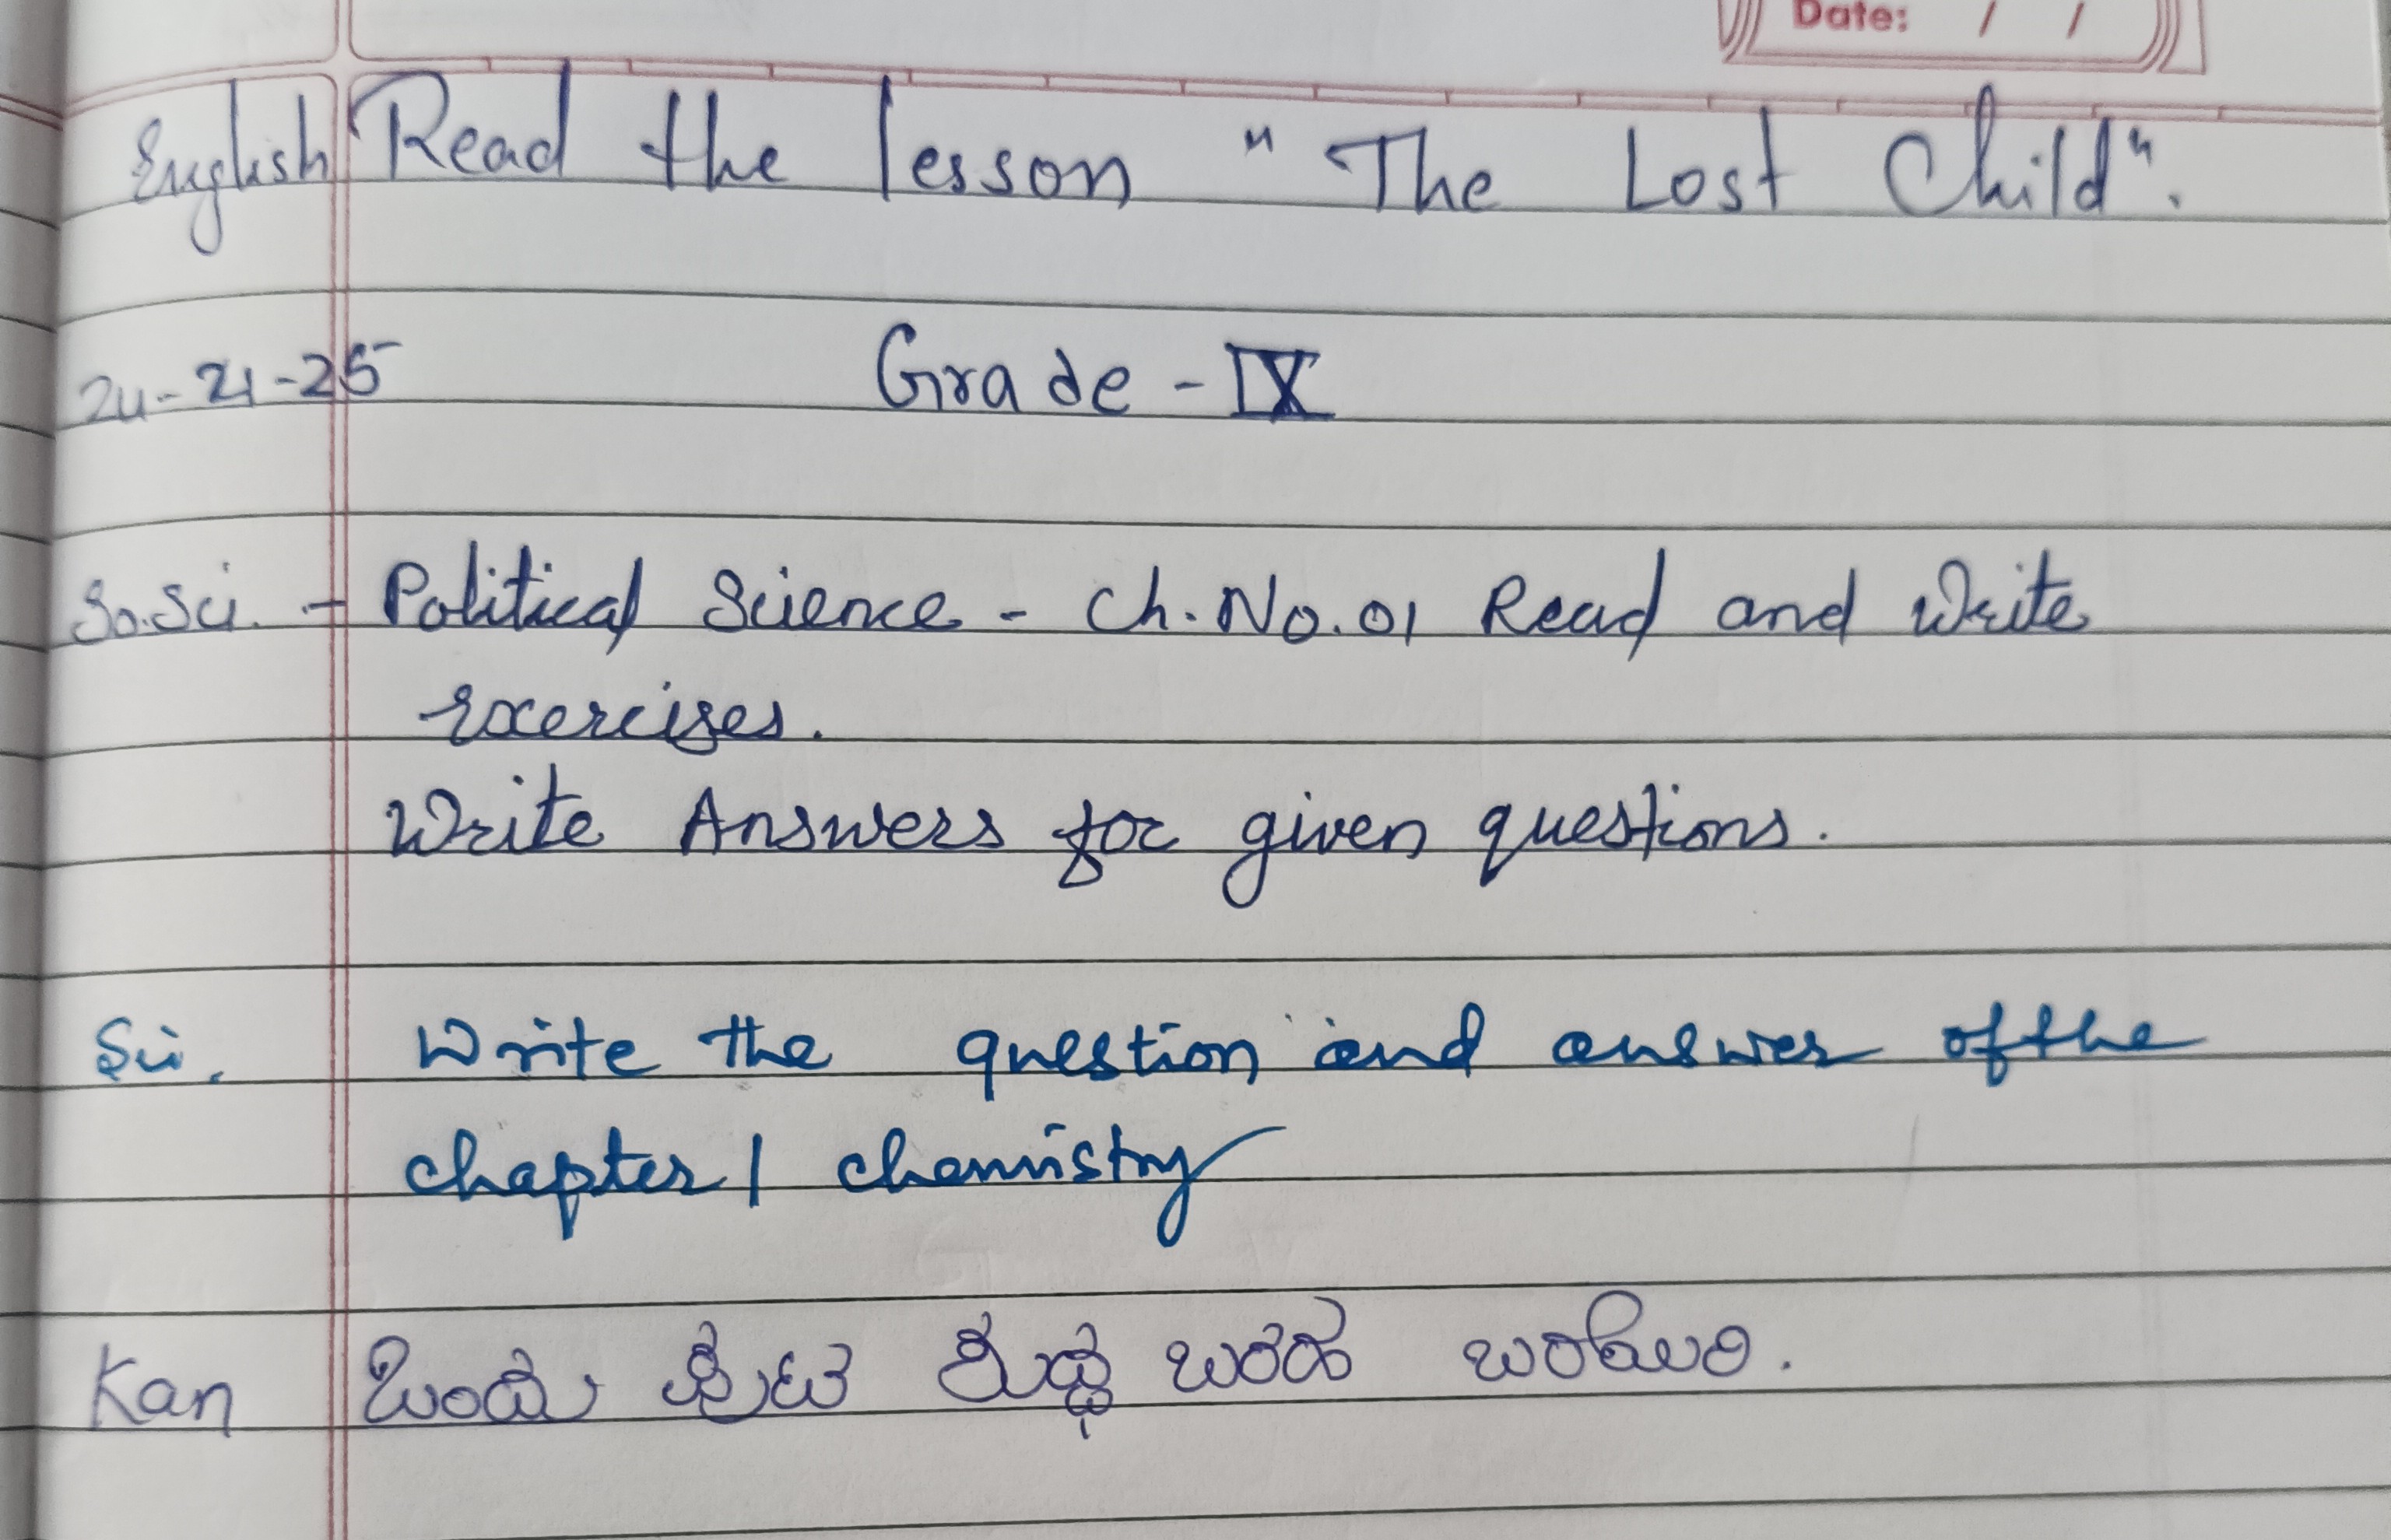 Date: / /
English Read the lesson "The Lost Child".
24-21-25 Grade - IX
So.Sci. - Political Science - Ch. No. 01 Read and Write
exercises.
Write Answers for given questions.
Sci. Write the question and answer of the
chapter 1 chemistry
Kan ಒಂದು ಪುಟ ಶುದ್ಧ ಬರಹ ಬರೆಯಿರಿ.